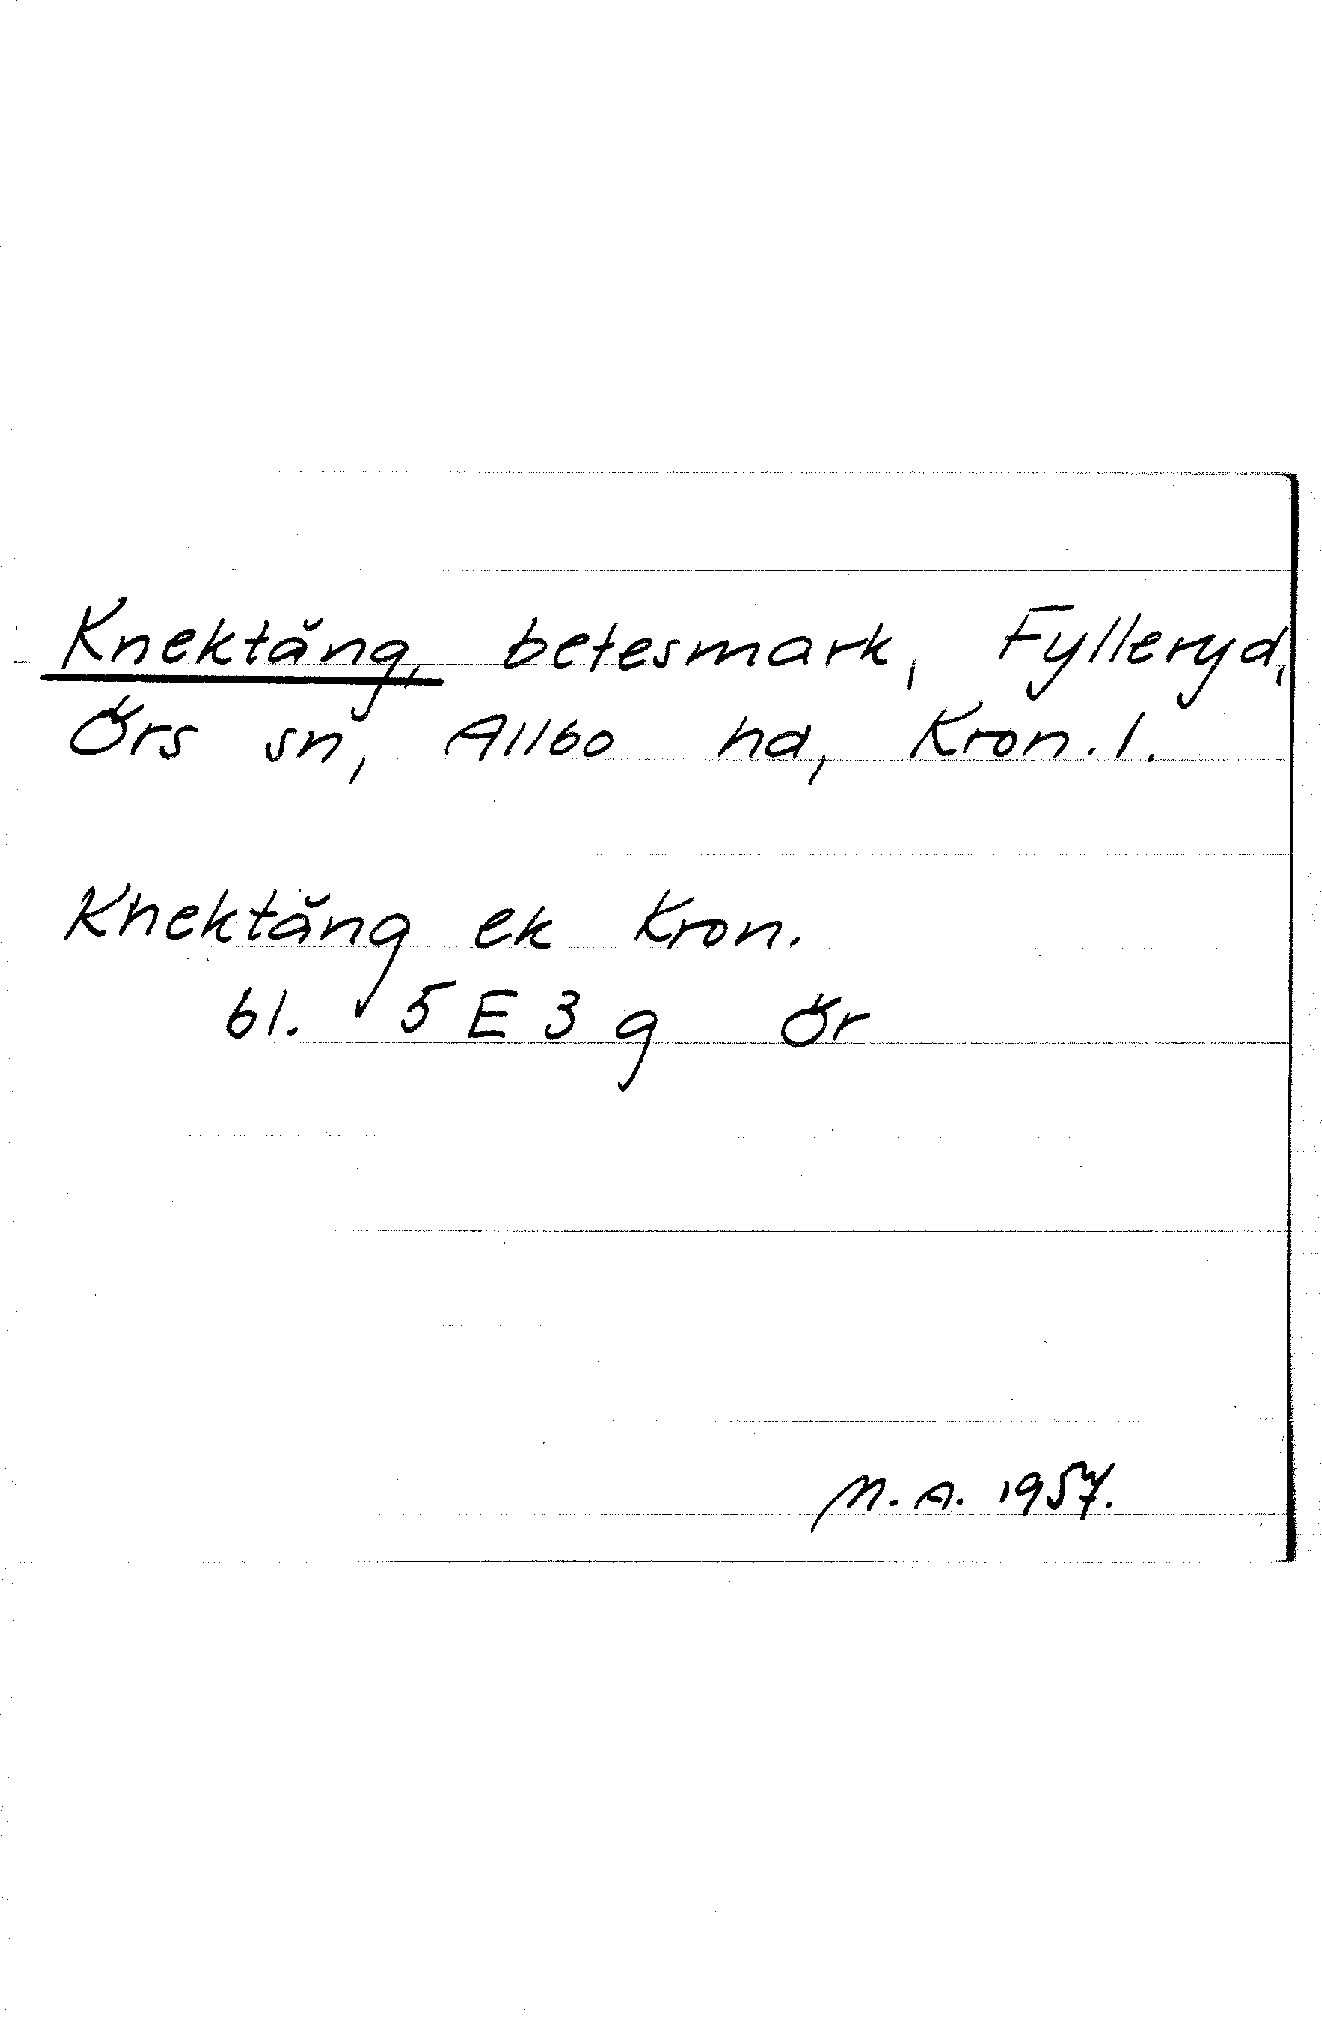 Knektäng, betesmark, Fylleryd,
Örs sn, Allbo hd, Kron. l.
Knektäng ek Kron.
bl. 5 E 3 g Ör
M. A. 1957.